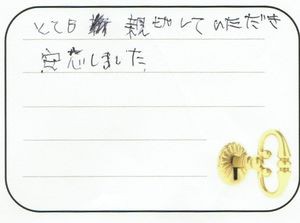 とても親切にして いただき
安心しました